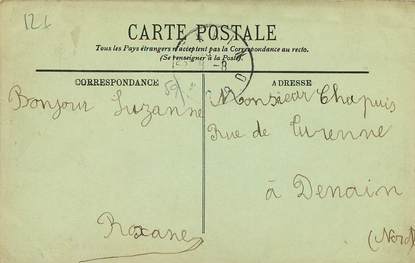 121
CARTE POSTALE
Tous les Pays étrangers n'acceptent pas la Correspondance au recto.
(Se renseigner à la Poste)
CORRESPONDANCE
ADRESSE
Bonjour Suzanne
Roxane
59
Monsieur Chapuis
Rue de Turenne
à Denain
(Nord)